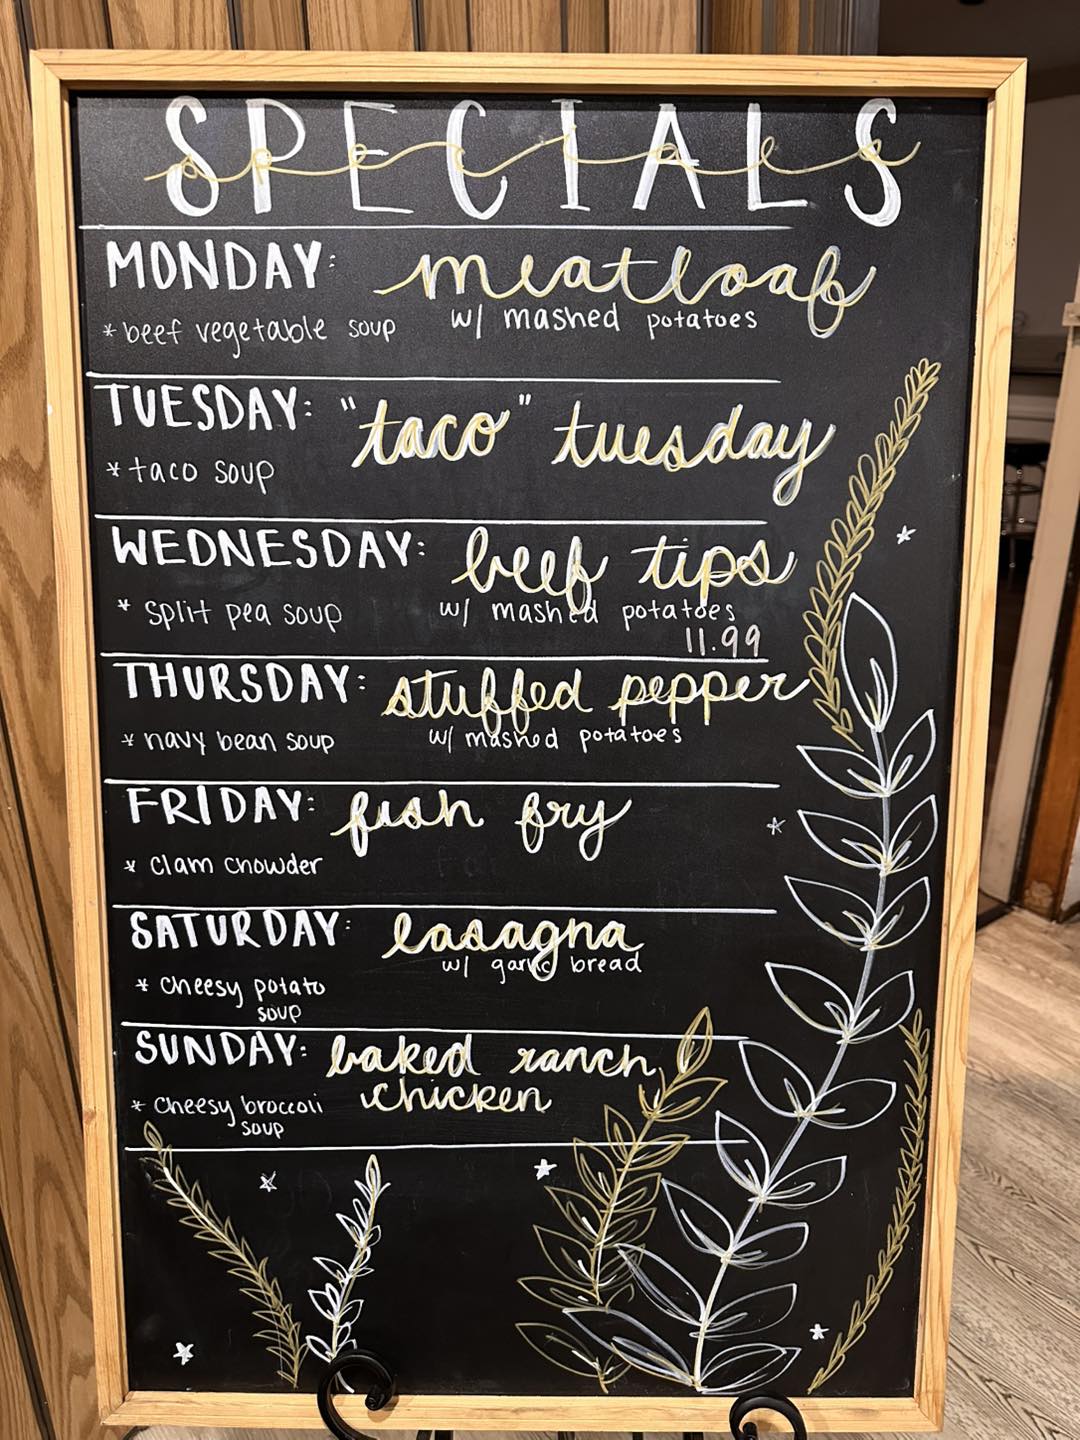 SPECIALS
specials
MONDAY: meatloaf
* beef vegetable soup w/ mashed potatoes
TUESDAY: "taco" tuesday
* taco soup
WEDNESDAY: beef tips
* split pea soup w/ mashed potatoes
11.99
THURSDAY: stuffed pepper
* navy bean soup w/ mashed potatoes
FRIDAY: fish fry
* clam chowder
SATURDAY: lasagna
w/ garlic bread
* cheesy potato
soup
SUNDAY: baked ranch
chicken
* cheesy broccoli
soup